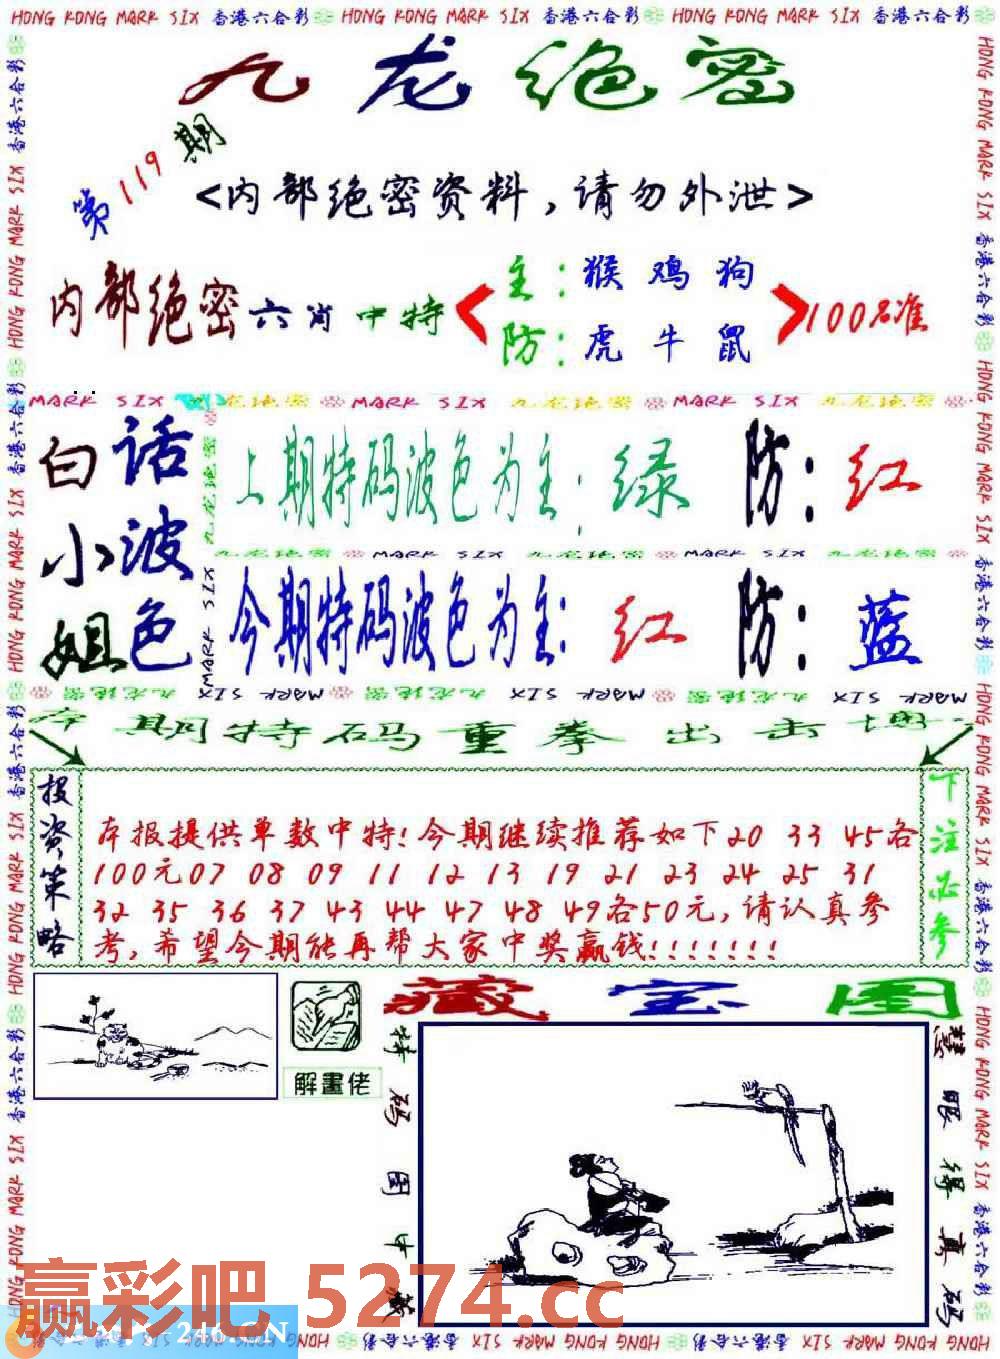 HONG KONG MARK SIX 香港六合彩 HONG KONG MARK SIX 香港六合彩 HONG KONG MARK SIX 香港六合彩
九龙绝密
第119期
<内部绝密资料,请勿外泄>
内部绝密六肖中特
主:猴鸡狗
防:虎牛鼠
100%准
MARK SIX 九龙绝密 MARK SIX 九龙绝密 MARK SIX 九龙绝密
白小姐
话波色
上期特码波色为主:绿 防:红
九龙绝密 MARK SIX 九龙绝密 MARK SIX 九龙绝密
今期特码波色为主:红 防:蓝
本期特码重拳出击
投资策略
本报提供单数中特!今期继续推荐如下20 33 45各
100元07 08 09 11 12 13 19 21 23 24 25 31
32 35 36 37 43 44 47 48 49各50元,请认真参
考,希望今期能再帮大家中奖赢钱!!!!!!!
下注必参
藏宝图
解畫佬
特码图中藏
慧眼得真码
赢彩吧 5274.cc
246.CN